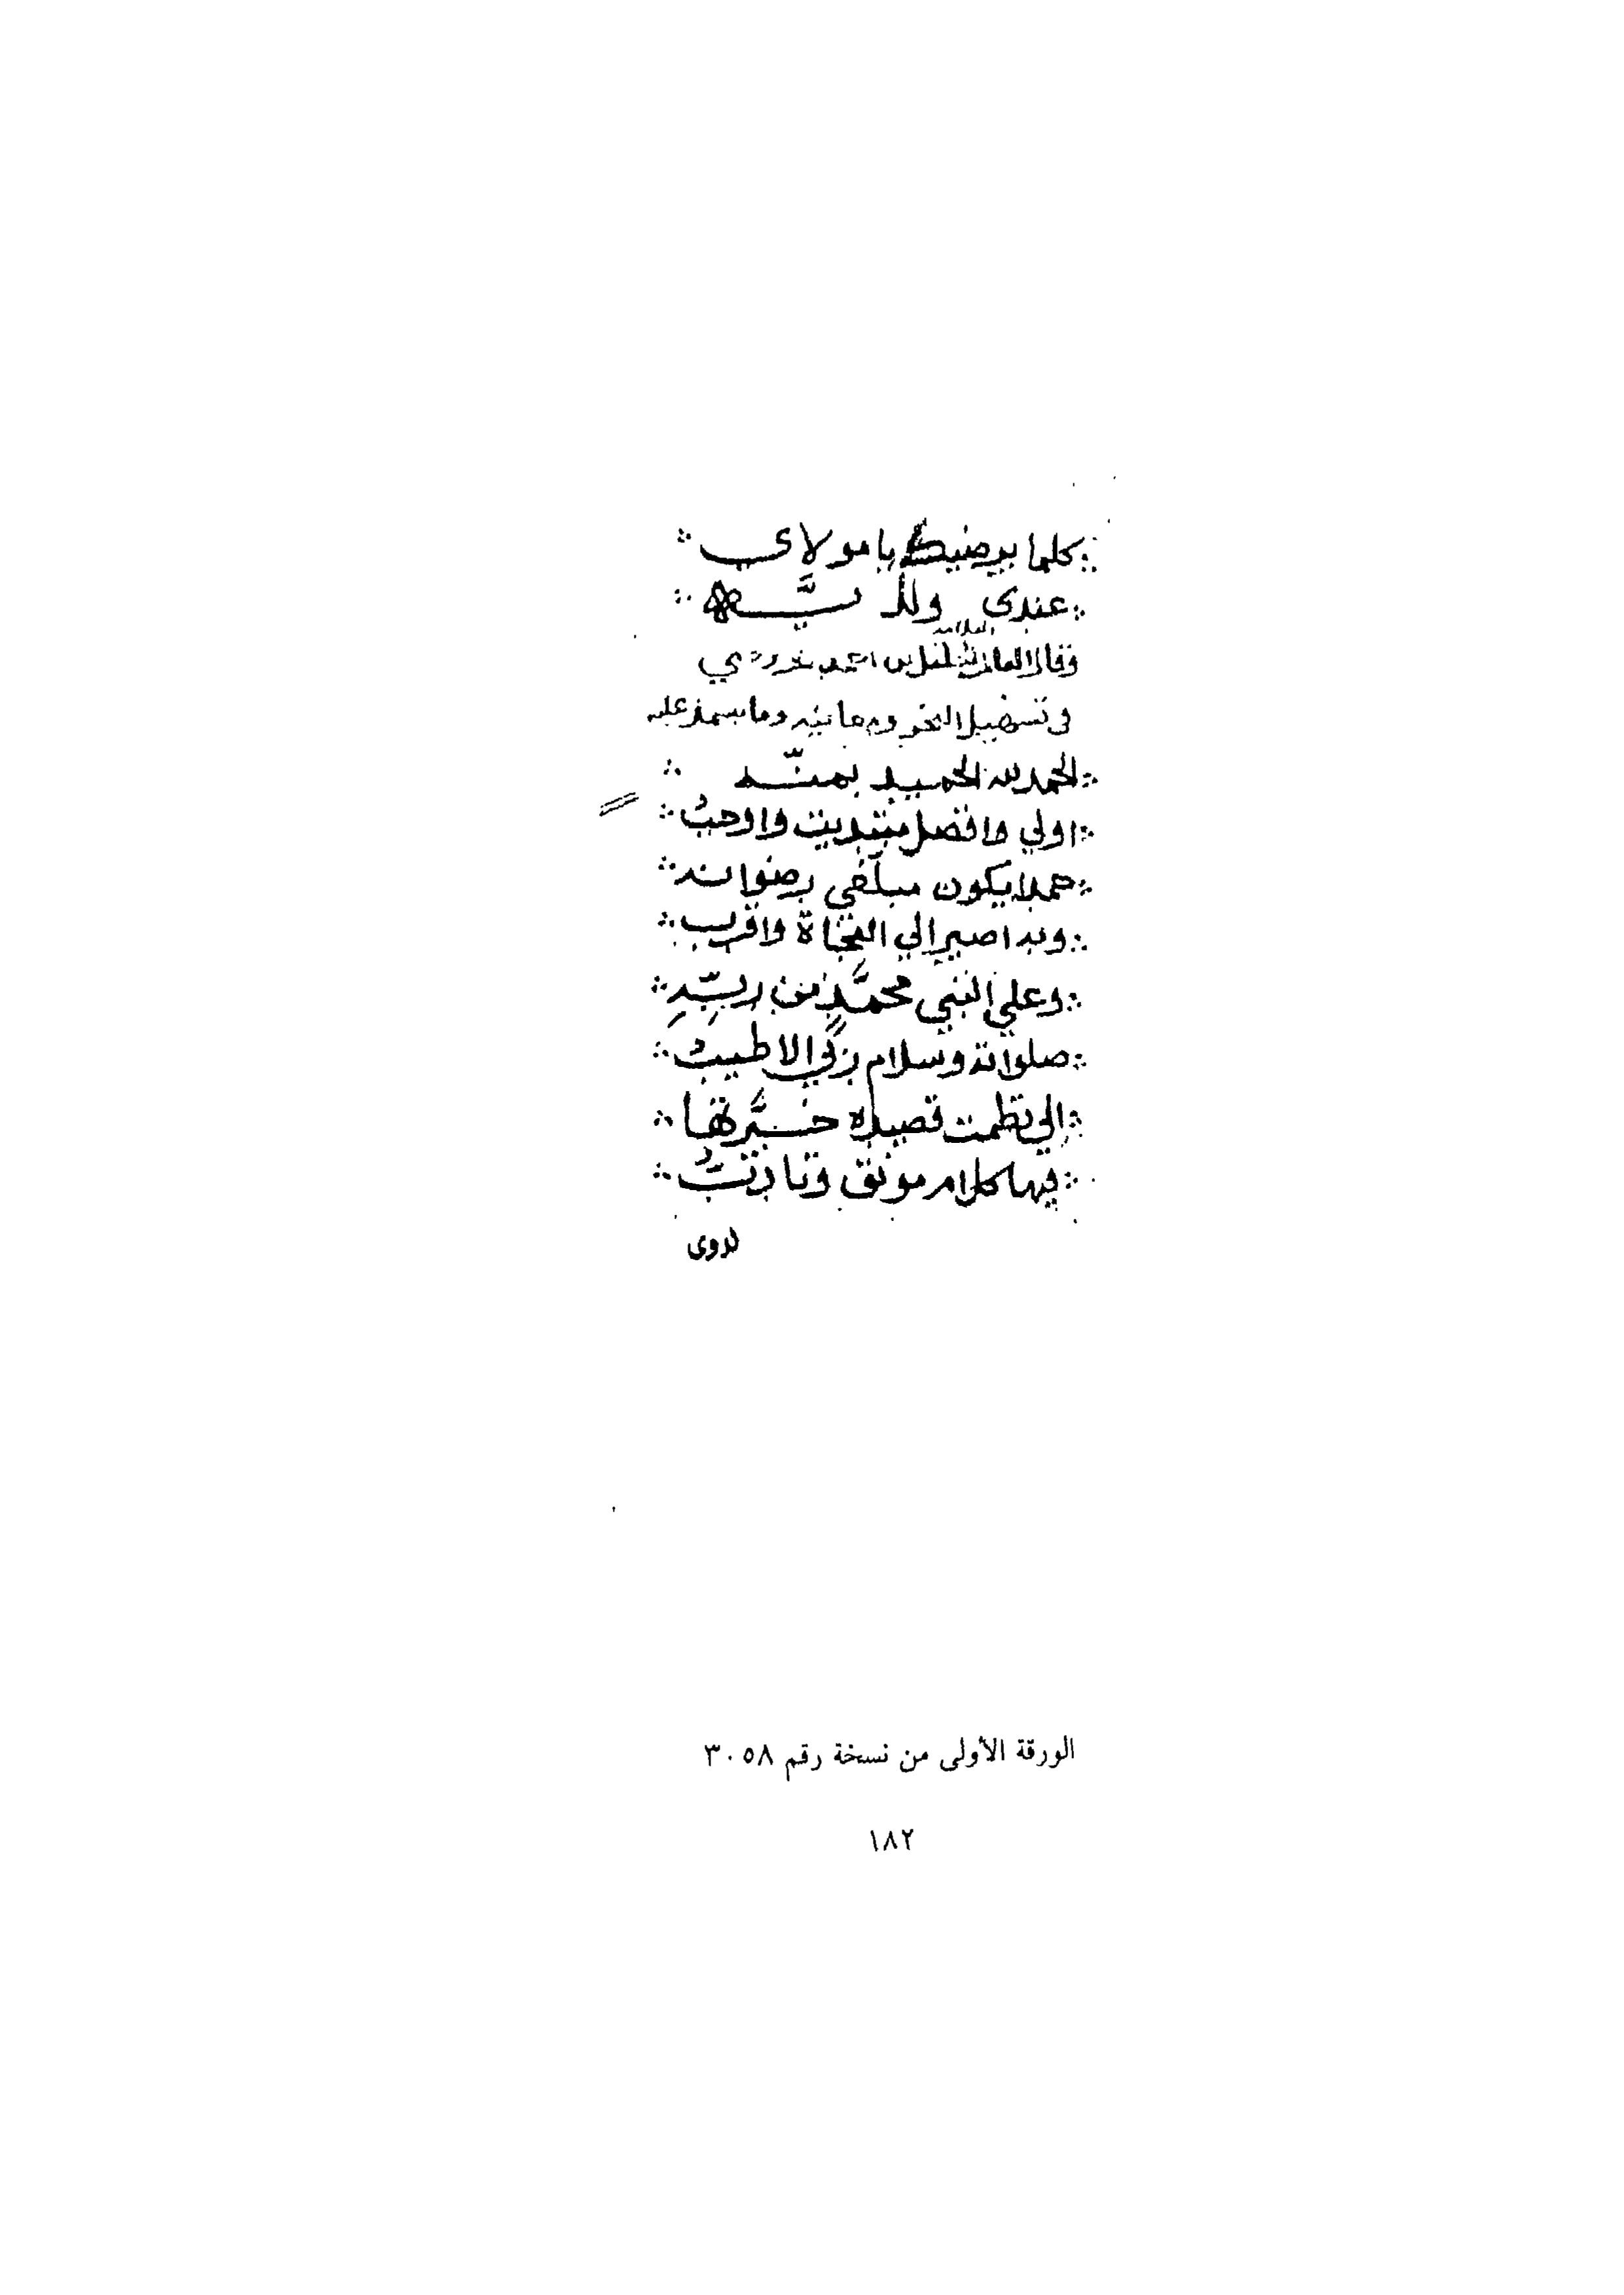 كلما يرضيك يا مولاي
عندي ولك
وقال العالم العلامه الخليل بن احمد
في تسهيل النحو ومعانيه وما يسهل عليه
الحمد لله الحميد بمنّه
اولي وافضل ما ابتديت واوجبُ
حمدا يكون مبلّغي رضوانه
وبه اصير الي النجاة واقرب
وعلي النبي محمَّد من ربّهِ
صلواته وسلام ربّي الاطيبُ
اني نظمت قصيدة حبَّرتها
فيها كلام مونق وتادّبُ
لذوى
الورقة الأولى من نسخة رقم ٣٠٥٨
١٨٢